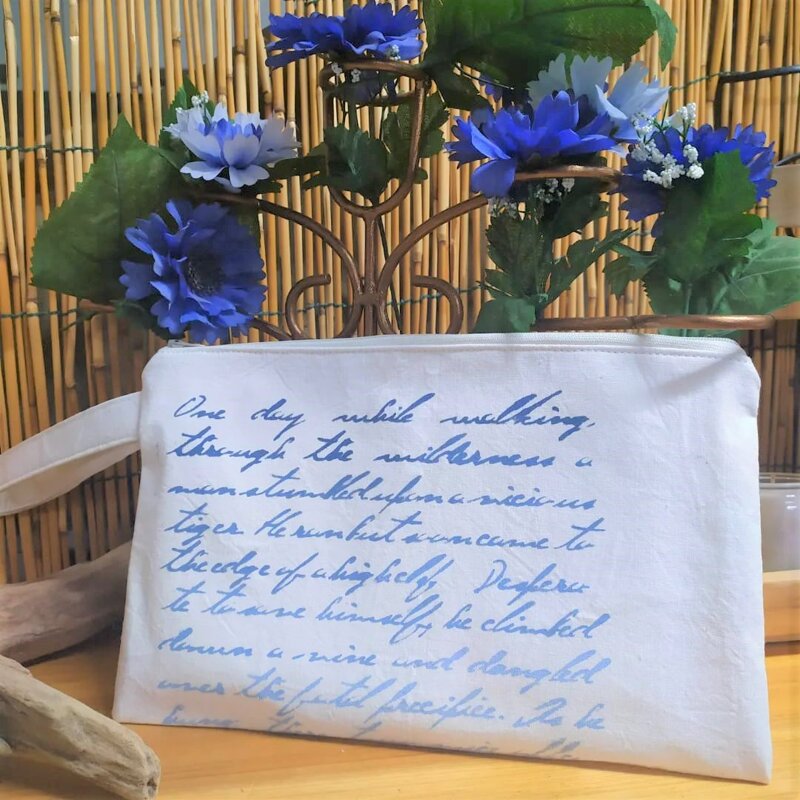 One day while walking,
through the wilderness a
man stumbled upon a vicious
tiger. He ran but soon came to
the edge of a high clff Despera
te to save himself, he climbed
down a vine and dangled
over the fatal precipice. As he
hung